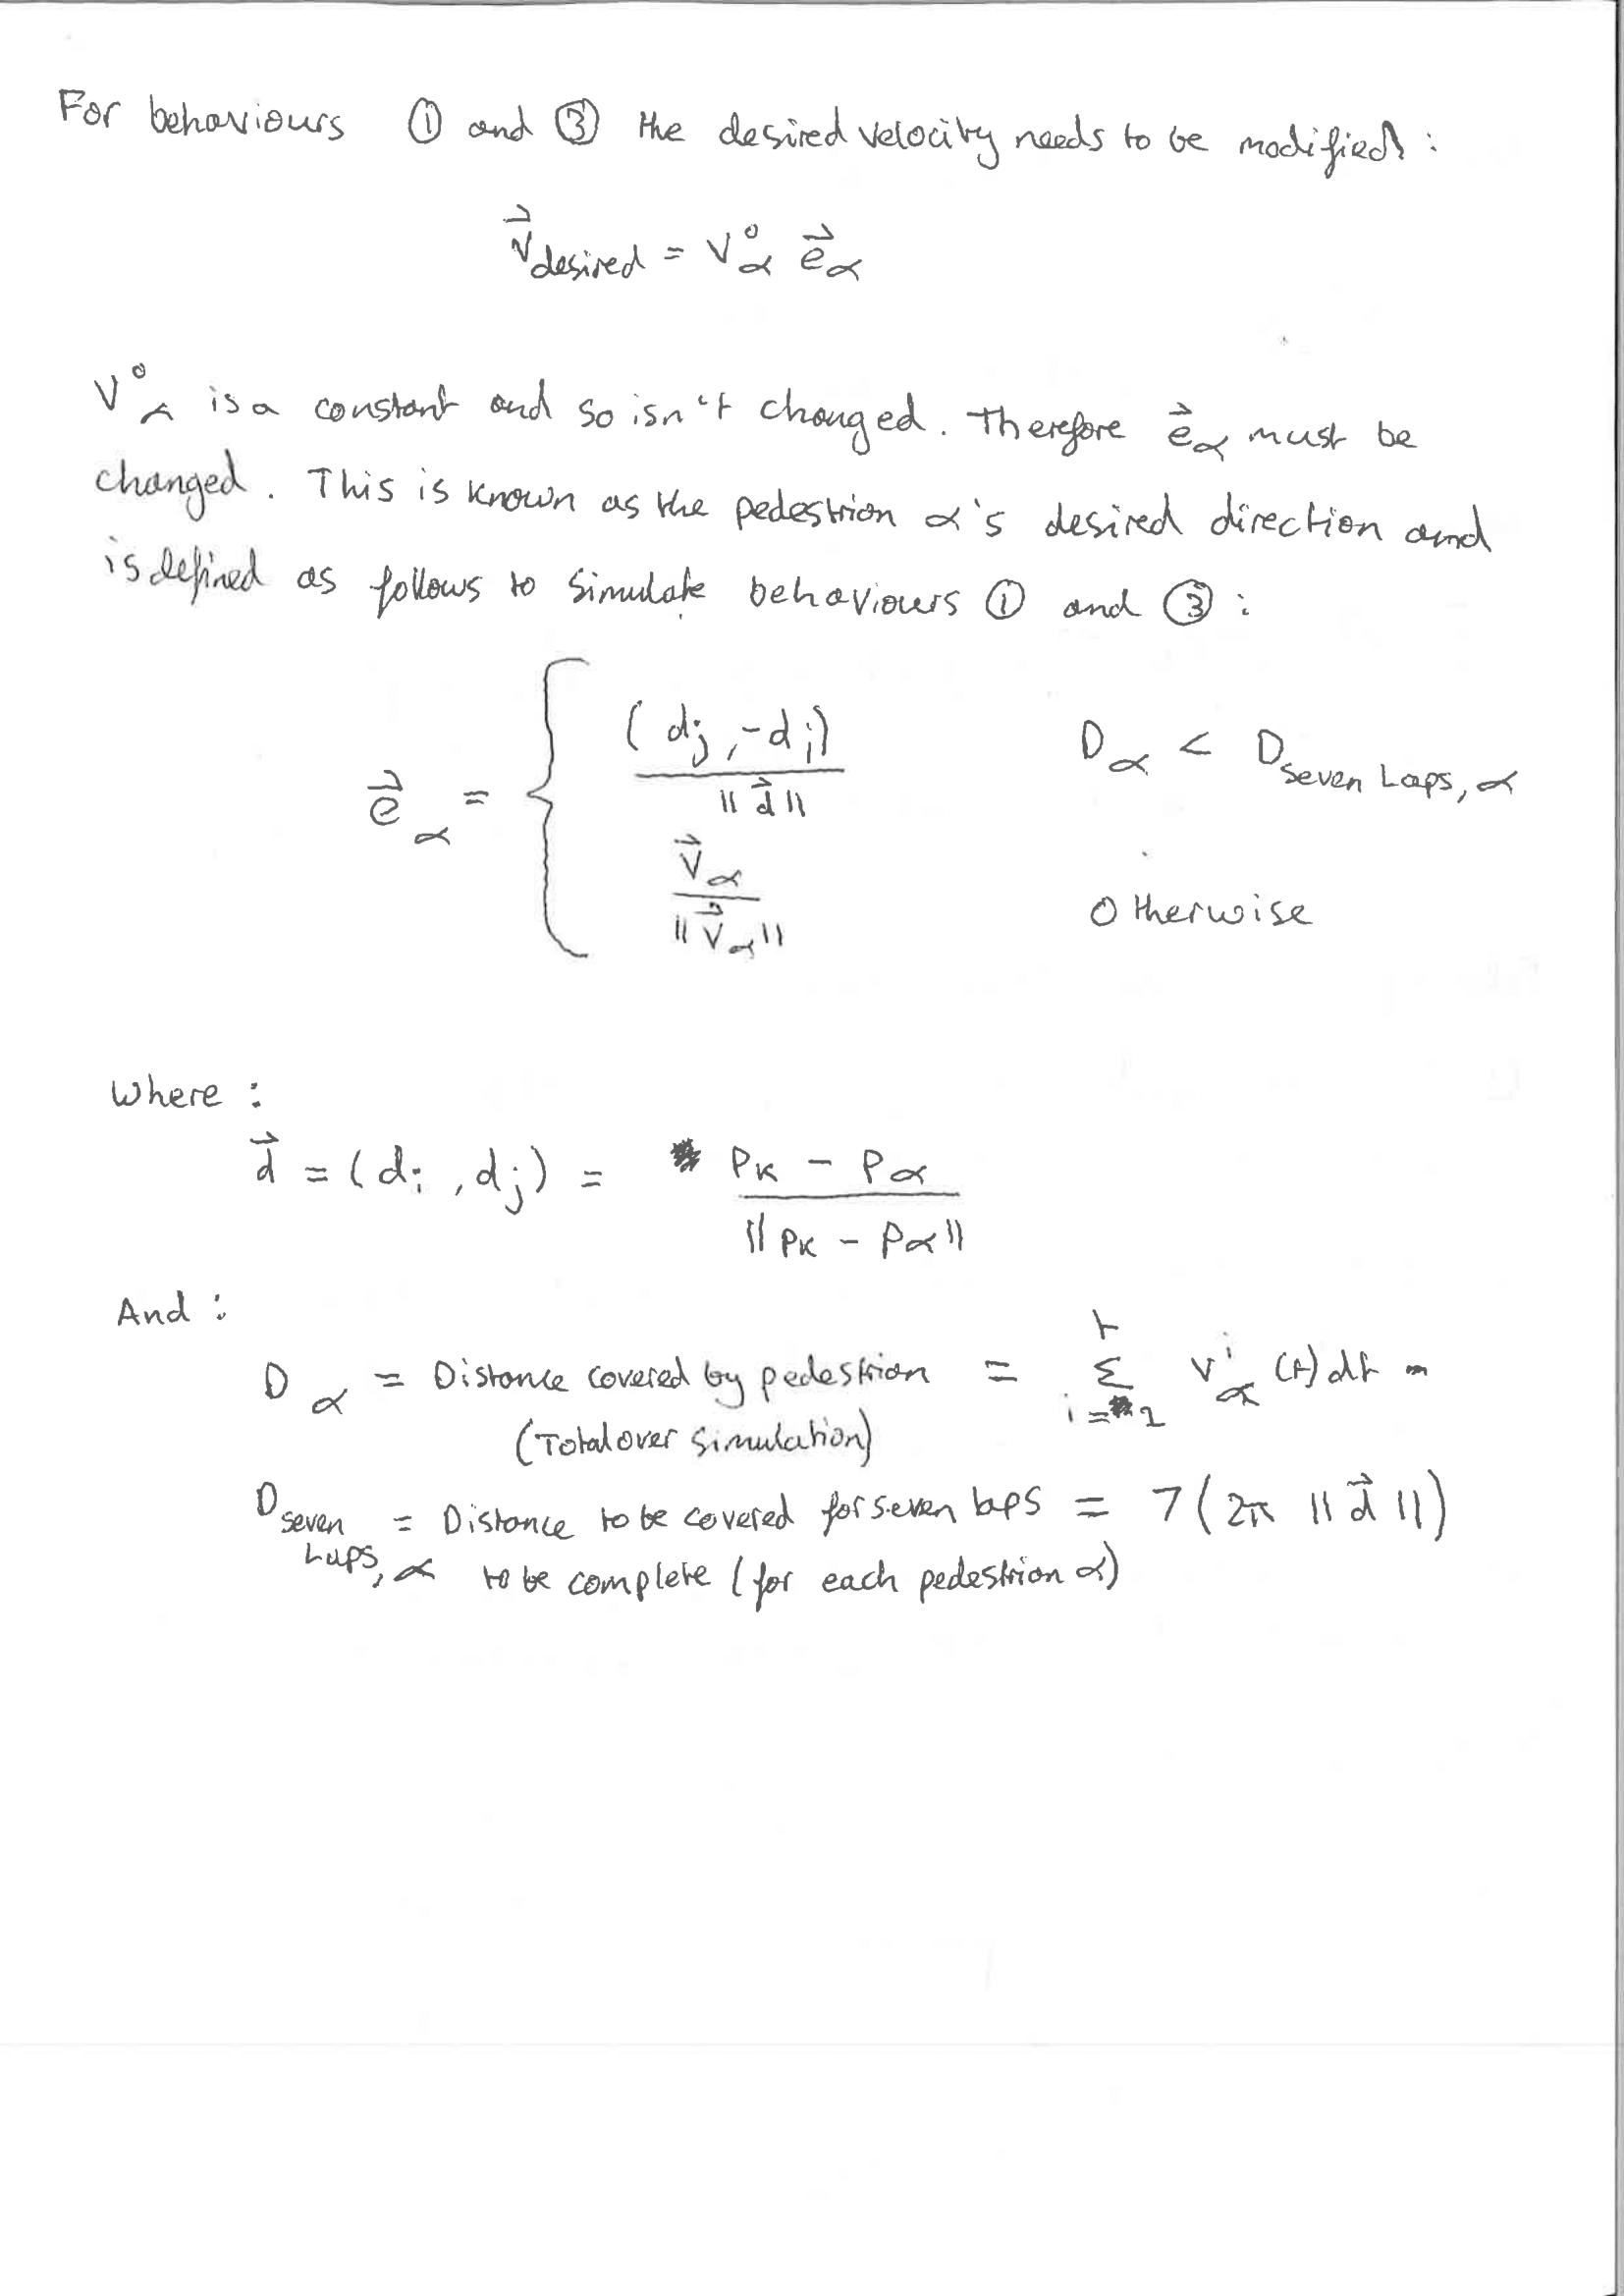 For behaviours ① and ③ the desired velocity needs to be modified:
v⃗ desired = v°α e⃗α
v°α is a constant and so isn't changed. Therefore e⃗α must be
changed. This is known as the pedestrian α's desired direction and
is defined as follows to simulate behaviours ① and ③:
e⃗α = { (dj, -di) / ||d⃗|| Dα < Dseven Laps, α
v⃗α / ||v⃗α|| otherwise
Where:
d⃗ = (di, dj) = pk - pα / ||pk - pα||
And:
Dα = Distance covered by pedestrian = Σ i=1 t v^i α (t) dt
(Total over simulation)
Dseven Laps, α = Distance to be covered for seven laps = 7(2π ||d⃗||)
to be complete (for each pedestrian α)